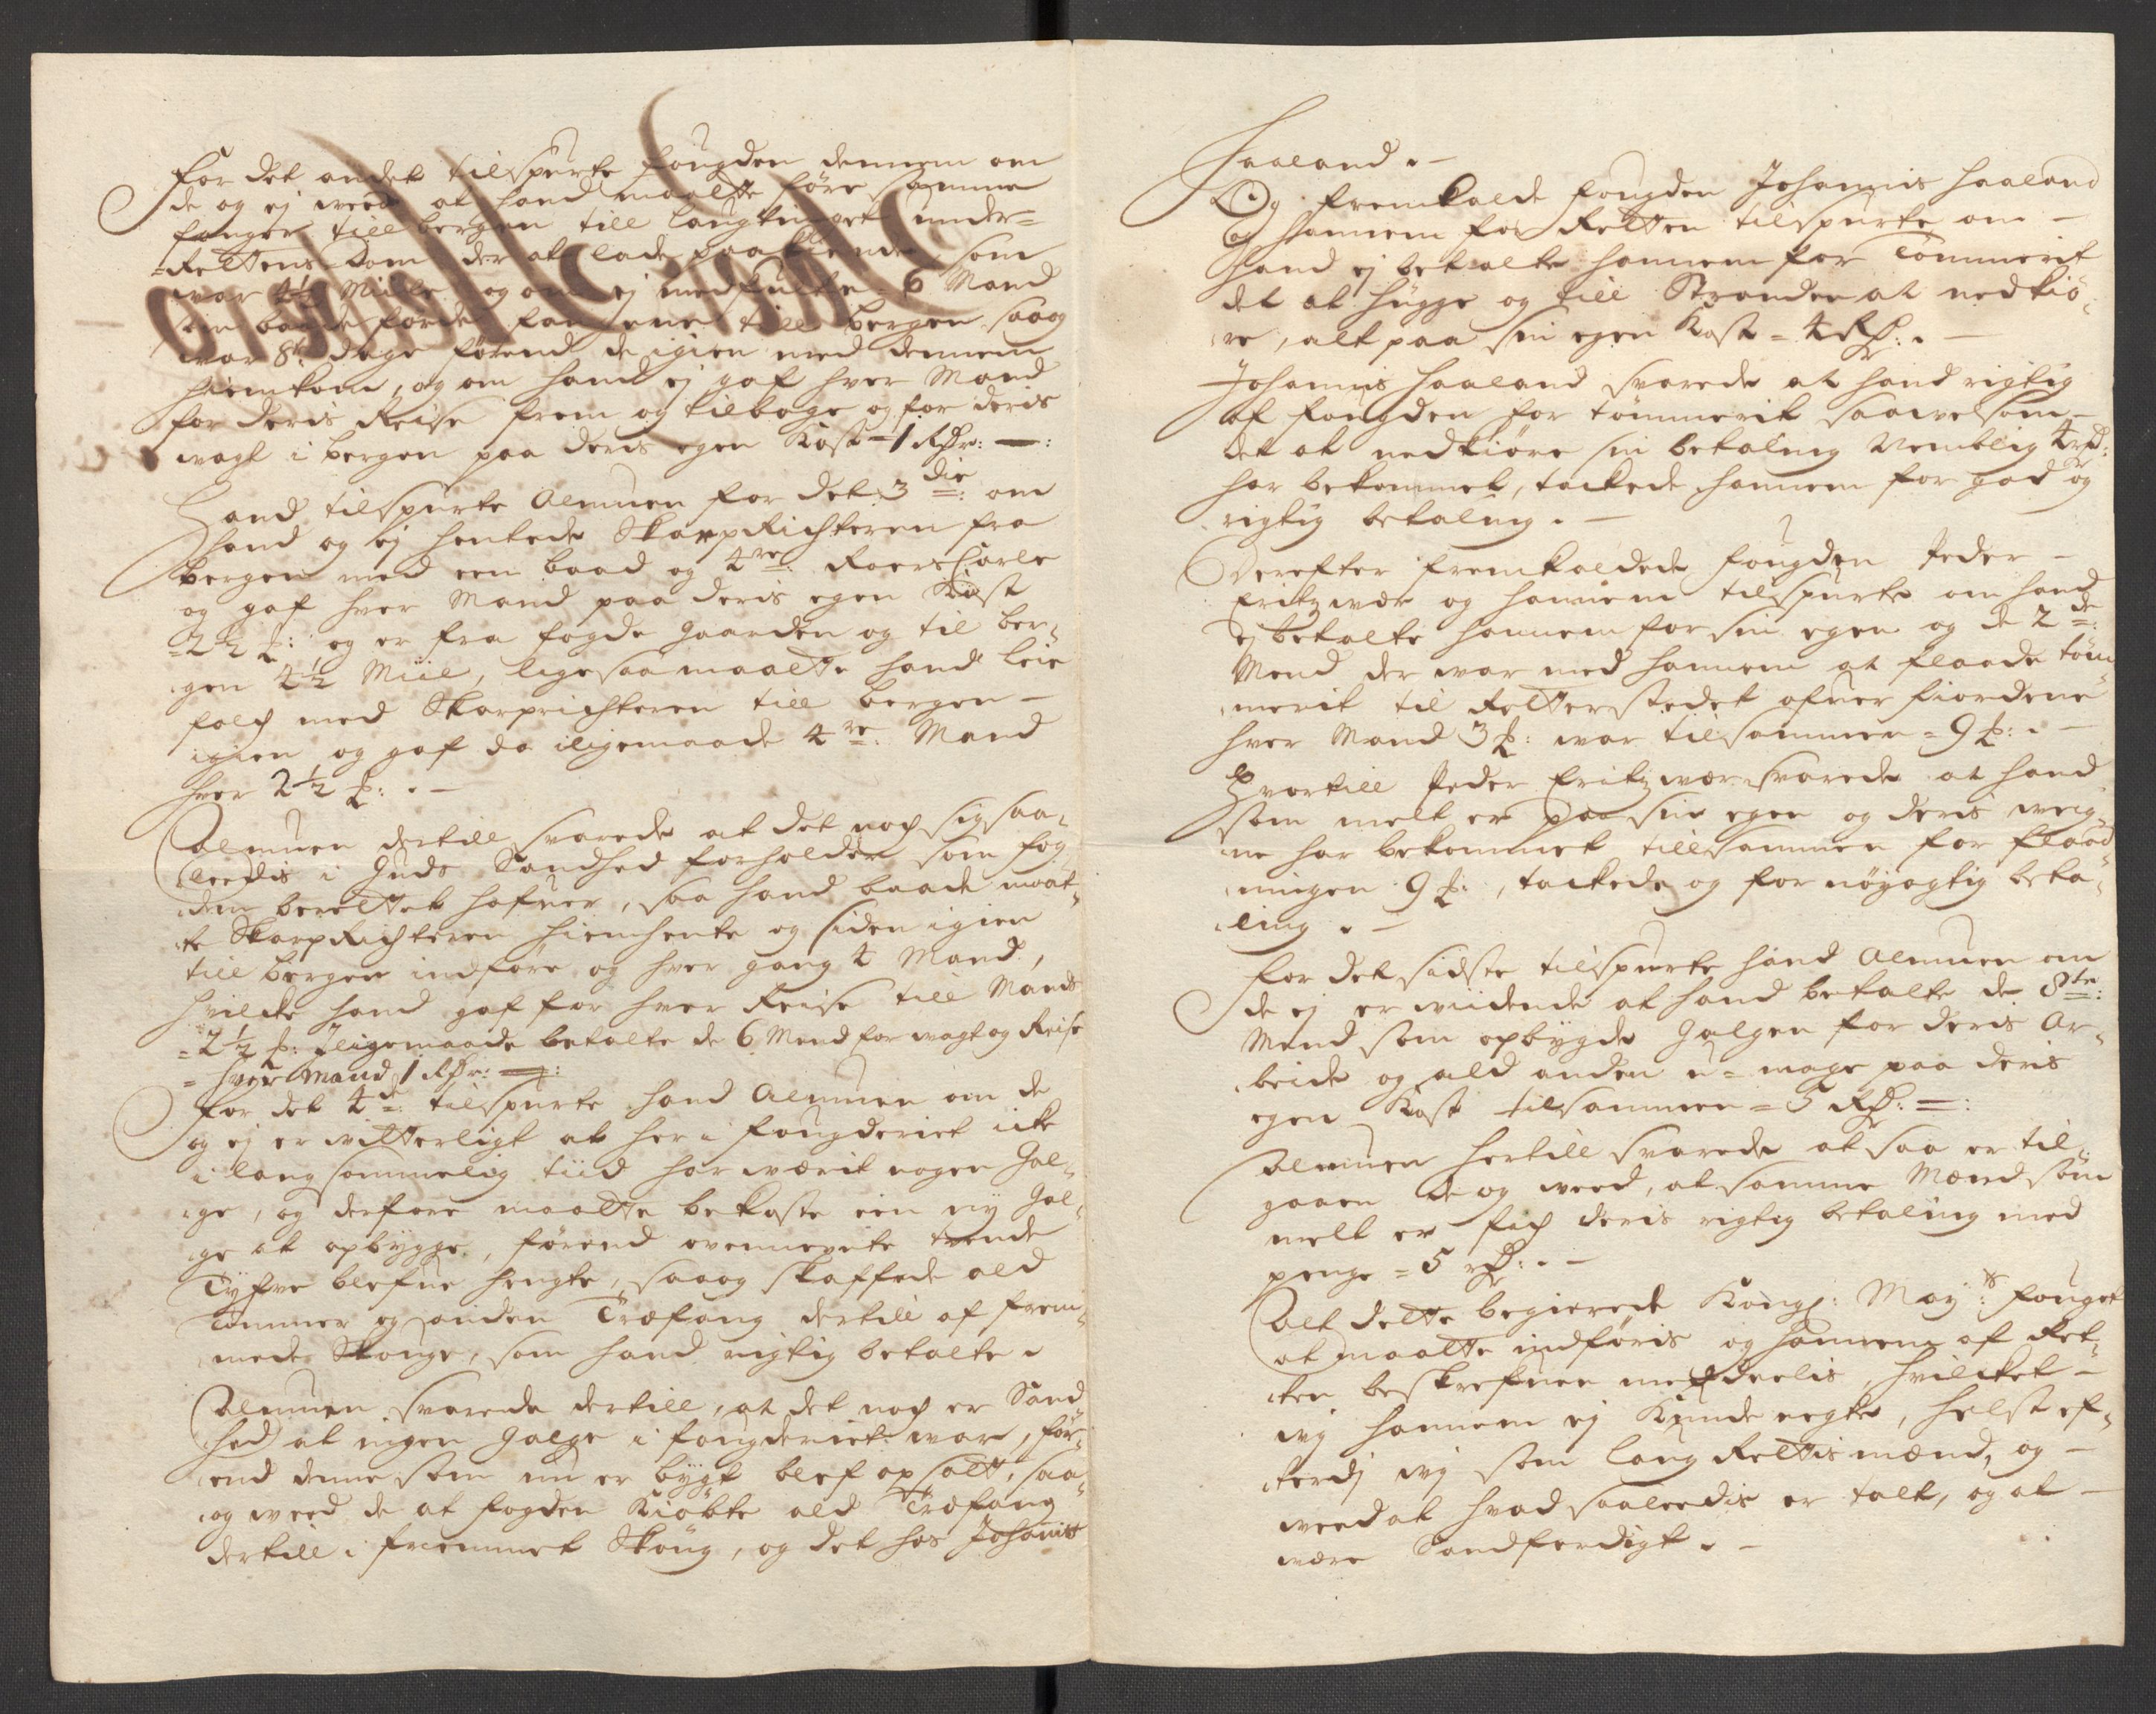 For det andet tilspurte fougden dennem om
de og ej weed at hand maatte före samme
fanger till bergen till laugtinget under=
=Rettens Dom der at lade paakiende, som
war 4½ Miile og om ej medfulte = 6 Mand
som baade förde fangene till bergen saa og
war 8te dage förend de igien med dennem
hiemkom, og om hand ej gaf hver Mand
for deris Reise frem og tilbage og for deris
wagt i bergen paa deris egen Kost = 1 Rdr: —:
Hand tilspurte Almuen for det 3die: om
hand og ej hentede SkarpRichteren fra
Bergen med een baad og 4re: Roers Carle
og gaf hver Mand paa deris egen Kost
=2½ ß: og er fra fogde Gaarden og til Ber=
gen 4½ Miil, ligesaa maatte hand leie
folch med Skarprichteren till bergen —
igien og gaf da iligemaade 4re: Mand
hver 2½ ß: . —
Almuen dertill svarede at det noch sig saa=
leedis i Guds Sandhed forholder som fog=
den berettet hafuer, saa hand baade maat=
te SkarpRichteren hiemhente og siden igien
till bergen indföre og hver gang 4 Mand,
hvilcke hand gaf for hver Reise till Mands
=2½ ß: Iligemaade betalte de 6 Mend for wagt og Reise
= hver Mand 1 Rdr: —:
For det 4de: tilspurte hand Almuen om de
og ej er witterligt at her i fougderiet icke
i lang sommelig tiid har wærit nogen Gal=
ge, og derfore maatte bekoste een ny Gal=
ge at opbygge, förend ovennevnte trende
Tyfve blefue hengte, saa og skaffede ald
Tömmer og anden Træfang dertill af frem=
mede Skouge, som hand rigtig betalte .
Almuen svarede dertill, at det noch er Sand=
hed at ingen Galge i fougderiet war, för=
end denne som nu er bygt blef opsatt, saa
og weed de at fogden Kiöbte ald Træfang
dertill i fremmet Skoug, og det hos Johannis
Haaland . —
Og fremkalde fougden Johannis Haaland
og hannem for Retten tilspurte om —
hand ej betalte hannem for Tömmerit
det at hugge og till Stranden at nedkiö=
re, alt paa sin egen Kost = 4 Rd: . —
Johannis Haaland svarede at hand rigtig
af fougden for tömmerit saavelsom —
det at nedkiöre sin betaling Nemblig 4 rd:
har bekommet, tackede hannem for god og
rigtig betaling . —
Derefter fremkaldede fougden Peder —
Eritzwær og hannem tilspurte om hand
ej betalte hannem for sin egen og de 2de:
Mend der war med hannem at flaade töm=
merit til Retterstedet ofver fiordene
hver Mand 3 ß: war tilsammen = 9 ß: . —
Hvortill Peder Eritzwær svarede at hand
som melt er paa sin egen og deris weig=
ne har bekommet tillsammen for flaad=
ningen 9 ß:, tackede og for nöyagtig beta=
ling . —
For det sidste tilspurte hand Almuen om
de ej er wiidende at hand betalte de 8te:
Mend som opbygde Galgen for deris Ar=
beide og ald anden u=mage paa deris
egen Kost tilsammen = 5 Rd: =:
Almuen hertill svarede at saa er til=
gaaen de og weed, at samme Mænd som
melt er fich deris rigtig betaling med
penge = 5 rd: . —
Alt dette begierede Kongl: Maj:ts fouget
at maatte indföris og hannem af Ret=
ten beskrefuen meddeelis, hvilcket —
wy hannem ej Kunde negte, helst ef=
terdj wj som laug Rettismænd, og —
weed at hvad saaleedis er talt, og at —
være Sandferdigt . —